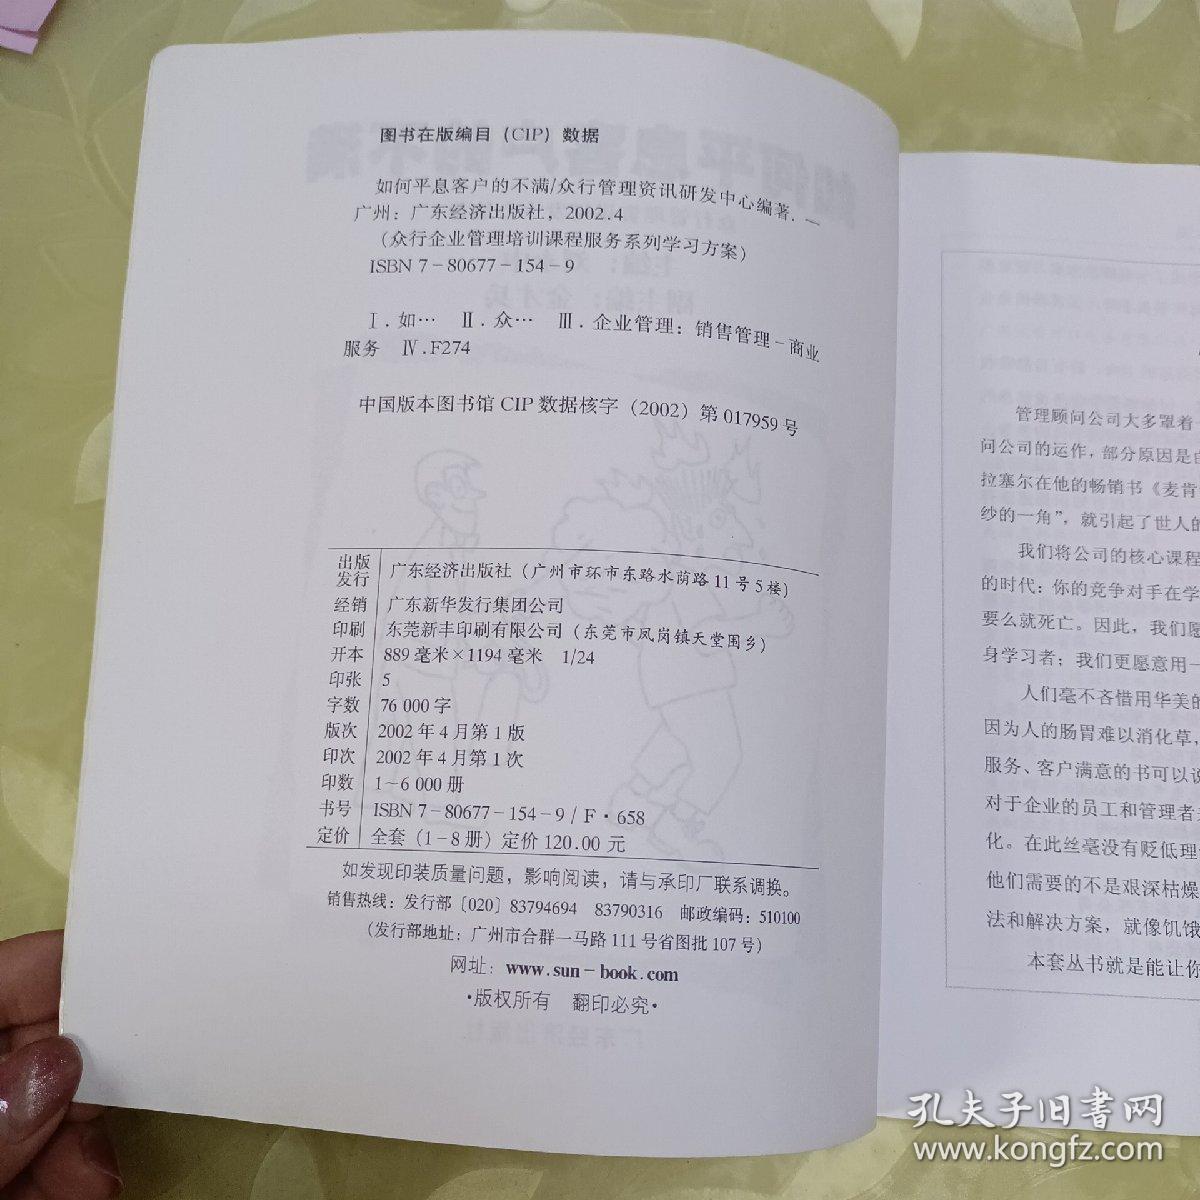 图书在版编目（CIP）数据
如何平息客户的不满/众行管理资讯研发中心编著. —
广州：广东经济出版社，2002.4
（众行企业管理培训课程服务系列学习方案）
ISBN 7－80677－154－9
Ⅰ.如… Ⅱ.众… Ⅲ.企业管理：销售管理－商业
服务 Ⅳ.F274
中国版本图书馆 CIP 数据核字（2002）第 017959 号
出版
发行 广东经济出版社（广州市环市东路水荫路 11 号 5 楼）
经销 广东新华发行集团公司
印刷 东莞新丰印刷有限公司（东莞市凤岗镇天堂围乡）
开本 889 毫米×1194 毫米 1/24
印张 5
字数 76 000 字
版次 2002 年 4 月第 1 版
印次 2002 年 4 月第 1 次
印数 1～6 000 册
书号 ISBN 7－80677－154－9 / F·658
定价 全套（1－8 册）定价 120.00 元
如发现印装质量问题，影响阅读，请与承印厂联系调换。
销售热线：发行部〔020〕83794694 83790316 邮政编码：510100
（发行部地址：广州市合群一马路 111 号省图批 107 号）
网址：www.sun－book.com
·版权所有 翻印必究·
管理顾问公司大多罩着
问公司的运作，部分原因是
拉塞尔在他的畅销书《麦肯
纱的一角”，就引起了世人的
我们将公司的核心课程
的时代：你的竞争对手在学
要么就死亡。因此，我们愿
身学习者；我们更愿意用一
人们毫不吝惜用华美的
因为人的肠胃难以消化草，
服务、客户满意的书可以说
对于企业的员工和管理者
化。在此丝毫没有贬低理
他们需要的不是艰深枯燥
法和解决方案，就像饥饿
本套丛书就是能让你
孔夫子旧书网
www.kongfz.com